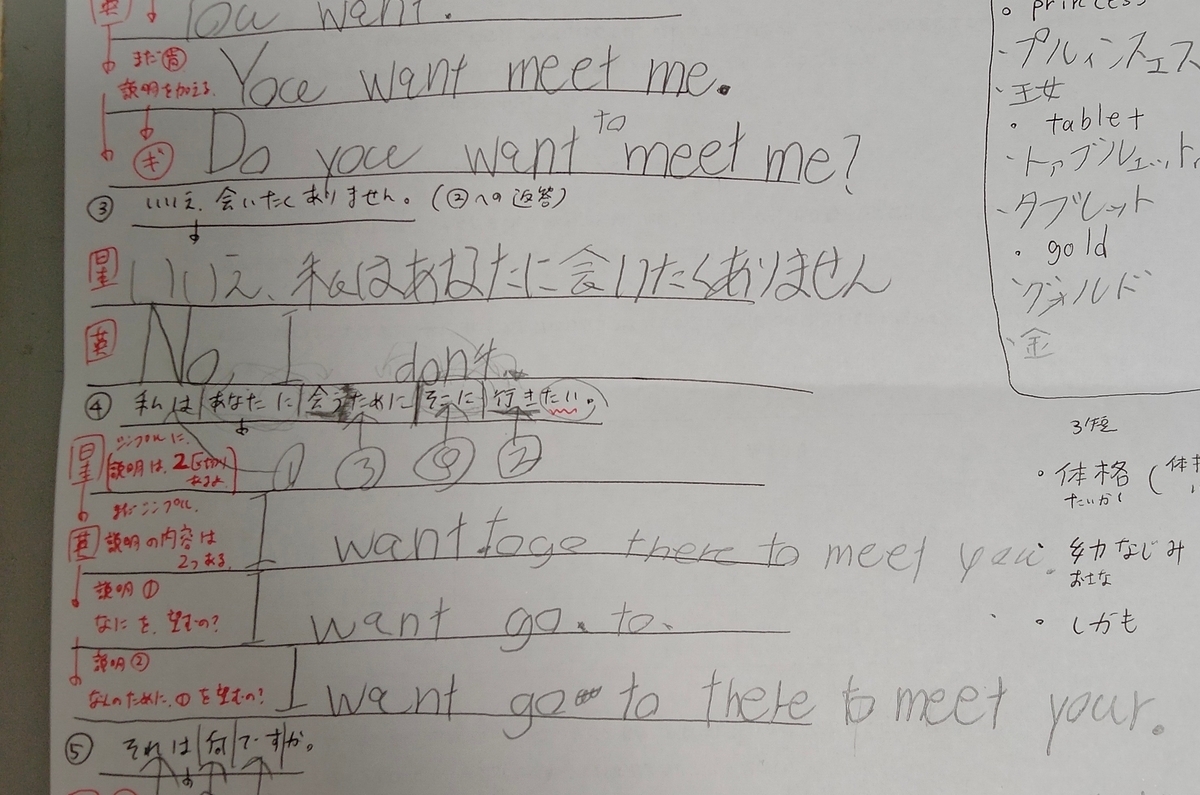 英
You want.
また
説明を加える。
You want meet me.
ギ
Do you want to meet me?
③ いいえ、会いたくありません。(②への返答)
星
いいえ、私はあなたに会いたくありません
英
No, I don't.
④ 私は|あなたに|会うために|そこに|行きたい。
① ③ ④ ②
星
シンプルに、
説明は、2区切り
あるよ
まだシンプル。
英 説明の内容は
2つある。
I want to go there to meet you.
説明①
なにを、望むの?
I want go. to.
説明②
なんのために、①を望むの?
I want go to there to meet your.
⑤ それは|何|ですか。
princess
プルィンスェス
王女
tablet
トァブルェット
タブレット
gold
グォルド
金
3短
体格(体
たいかく
幼なじみ
おさな
しかも